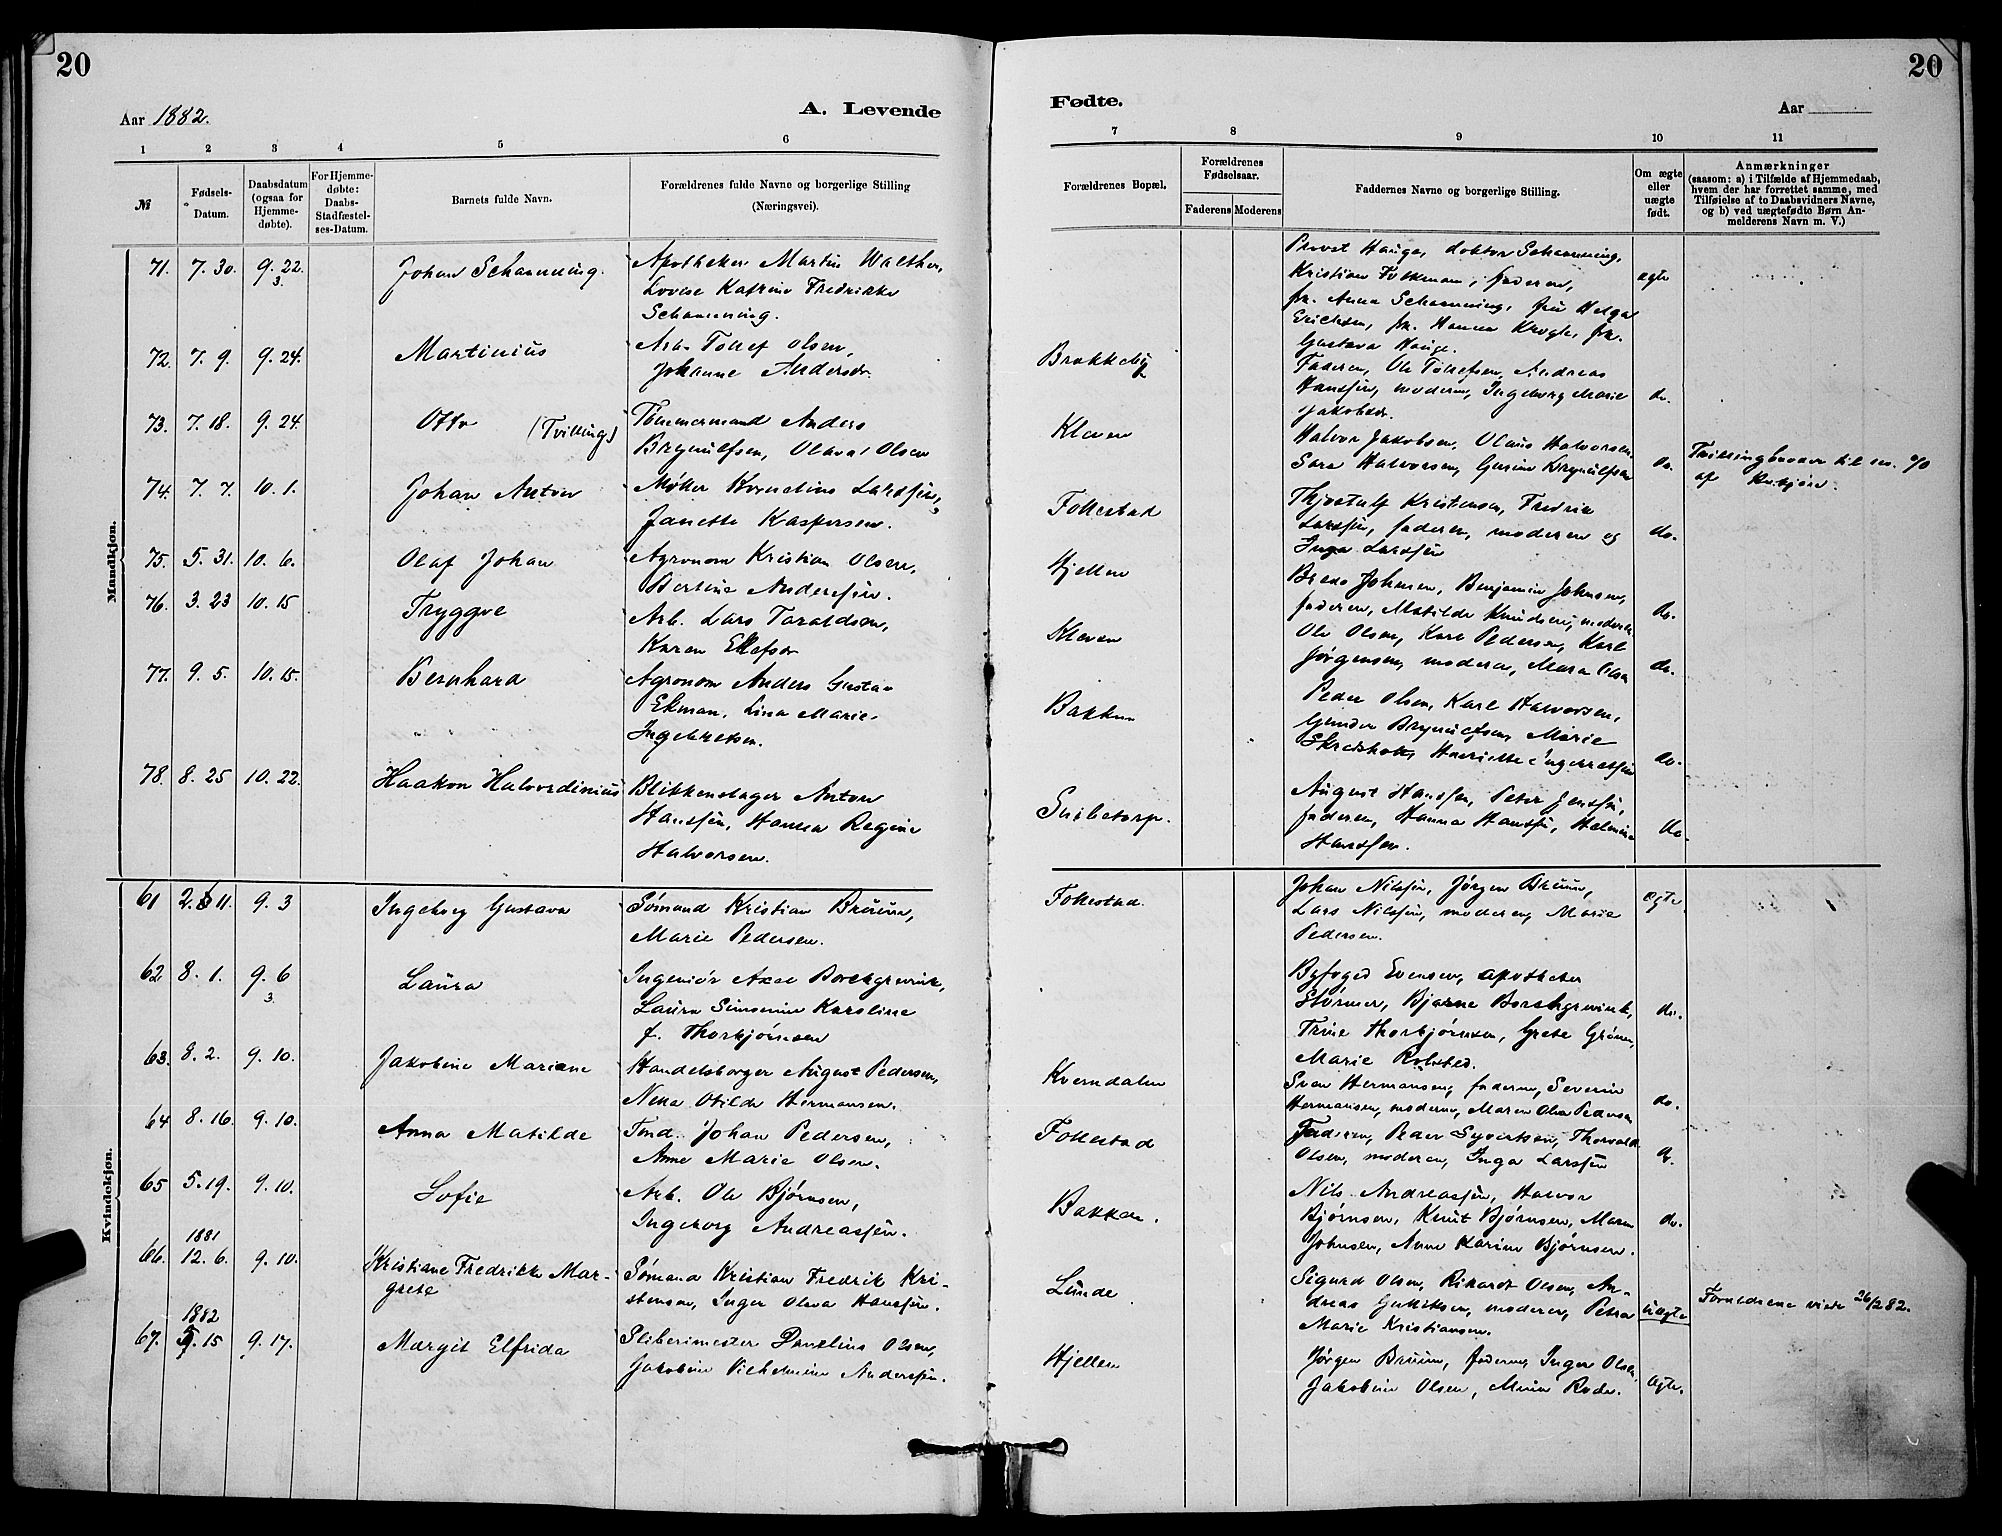 20
Aar 1882.
A. Levende
1 2 3 4 5 6
№
Fødsels-Datum.
Daabsdatum (ogsaa for Hjemmedøbte).
For Hjemmedøbte: Daabs-Stadfæstelses-Datum.
Barnets fulde Navn.
Forældrenes fulde Navne og borgerlige Stilling (Næringsvei).
Mandkjøn.
71. 7. 30. 9. 22. 3. Johan Schanning. Apotheker Martin Walther,
Lovise Katrine Fredrikke
Schanning.
72. 7. 9. 9. 24. Martinius Arb. Tollef Olsen,
Johanne Andersdr.
73. 7. 18. 9. 24. Otto (Tvilling) Tømmermand Anders
Brynulfsen, Olava Olsen
74. 7. 7. 10. 1. Johan Anton Møller Kornelius Lardsen,
Janette Kaspersen.
75. 5. 31. 10. 6. Olaf Johan Agronom Kristian Olsen,
Bertine Andersen.
76. 3. 23 10. 15 Tryggve Arb. Lars Taraldsen,
Karen Ellefsdr
77. 9. 5. 10. 15. Bernhard Agronom Anders Gustav
Ekman, Lina Marie
Ingebretsen.
78. 8. 25 10. 22. Haakon Halvordinius Blikkenslager Anton
Hanssen, Hanna Regine
Halvorsen.
Kvindekjøn.
61 2. 11. 9. 3 Ingeborg Gustava Sømand Kristian Bruun,
Marie Pedersen.
62 8. 1. 9. 6 3. Laura Ingeniør Axel Borchgrevink,
Laura Karoline
f. Thorbjørnsen
63. 8. 2. 9. 10. Jakobine Mariane Handelsborger August Pedersen,
Otilde Hermansen.
64 8. 16. 9. 10. Anna Matilde Tend. Johan Pedersen,
Anne Marie Olsen.
65 5. 19. 9. 10. Sofie Arb. Ole Bjørnsen,
Ingeborg Andreassen.
1881
66. 12. 6. 9. 10. Kristiane Fredrikke Mar- Sømand Kristian Fredrik Kri-
grete stensen, Inger Olava Hanssen.
1882
67. 15 9. 17. Margit Elfrida Sliberimester Danelius Olsen,
Jakobine Vilhelmine Anderssen.
20
Fødte.
Aar
7 8 9 10 11
Forældrenes Bopæl.
Forældrenes Fødselsaar.
Faderens Moderens
Faddernes Navne og borgerlige Stilling.
Om ægte eller uægte født.
Anmærkninger
(saasom: a) i Tilfælde af Hjemmedaab, hvem der har forrettet samme, med Tilføielse af to Daabsvidners Navne, og b) ved uægtefødte Børn Anmelderens Navn m. V.)
Provst Hauge, doktor Schanning,
Kristian Folkman, faderen, ægte
fr. Anna Schanning, fru Helga
Erichsen, fr. Hanna Krogh, fr.
Gustava Hauge.
Brekkeby Faderen, Ole Tollefsen, Andreas
Hanssen, moderen, Ingeborg Marie do.
Jakobsdr.
Kleven Halvor Jakobsen, Olaus Halvorsen,
Sara Halvorsen, Gurine Brynulfsen do. Tvillingbroder til
af
Follestad Thjostulf Kristensen, Fredrik
Lardsen, faderen, moderen og do.
Inga Lardsen
Hjellen Johnsen, Benjamin Johnsen,
faderen, Matilde Knudsen, moderen do.
Kleven Ole Olsen, Karl Pedersen, Karl
Jørgensen, moderen, Maren Olsen do.
Bakken Peder Olsen, Karl Halvorsen,
Gunder Brynulfsen, Marie
Henriette Ingebretsen do.
Snibetorp. August Hanssen, Peter Jenssen,
faderen, Hanna Hanssen, Halvine do.
Hanssen.
Follestad. Johan Nilssen, Jørgen Bruun, ægte.
Lars Nilssen, moderen, Marie
Pedersen.
Byfoged Evensen, apotheker
Størmer, Bjarne Borchgrevink, do.
Trine Thorbjørnsen, Grete Grønn,
Marie Rolsted.
Kverndalen Sven Hermansen, faderen, Severin
Hermansen, moderen, Maren Olea Pedersen do.
Follestad Faderen, Peder Syvertsen, Thorvald
Olsen, moderen, Inga Larssen do.
Bakken. Nils Andreassen, Halvor
Bjørnsen, Knut Bjørnsen, Maren do.
Johnsen, Anne Karine Bjørnsen.
Lunde Sigurd Olsen, Rikard Olsen, An-
dreas Gulliksen, moderen, Petra uægte Forældrene viede 26/2 82.
Marie Kristiansen.
Hjellen Jørgen Bruun, faderen, Inger Olsen,
Jakobine Olsen, Mina Rode. ægte.